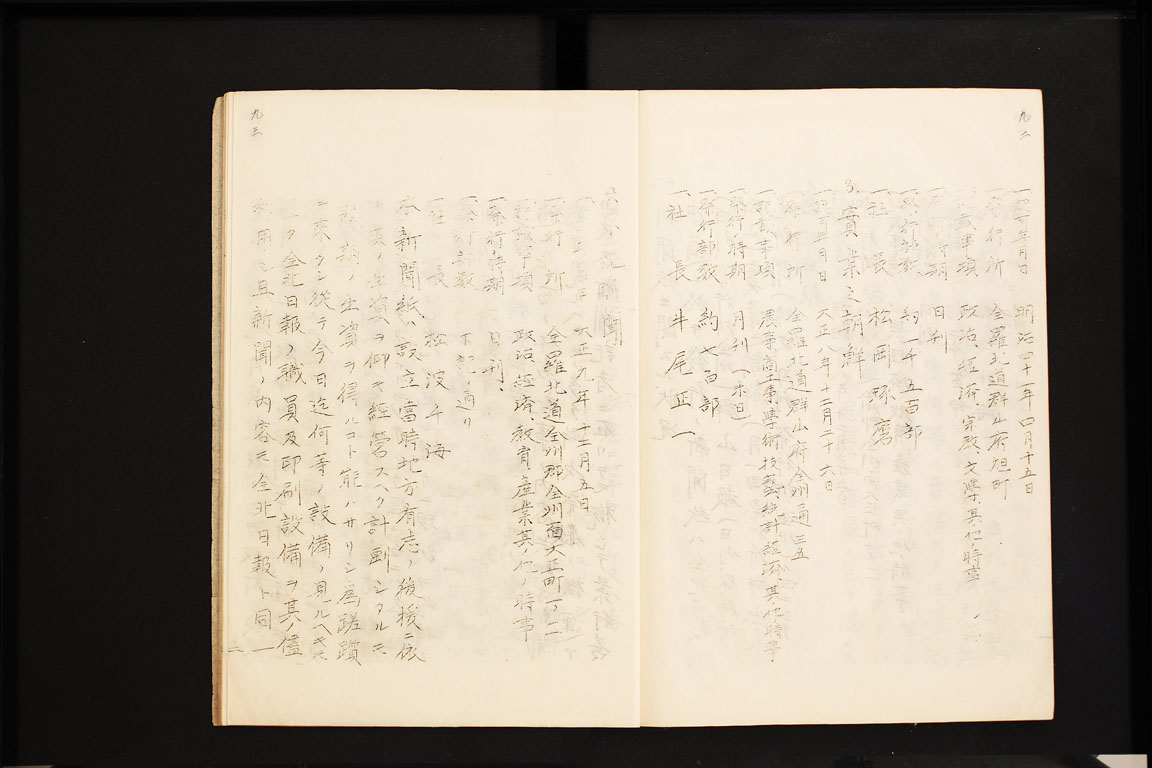 九二
一、認可年月日 明治四十一年四月十五日
一、発行所 全羅北道群山府旭町
一、記載事項 政治、経済、宗教、文學、其ノ他ノ時事
一、発行時期 日刊
一、発行部数 約一千五百部
一、社長 松岡琢磨
3. 實業之朝鮮
一、認可年月日 大正八年十二月二十六日
一、発行所 全羅北道群山府全州通三五
一、記載事項 農事、商工事、學術、技藝、統計、経済、其ノ他時事
一、発行時期 月刊(末日)
一、発行部数 約七百部
一、社長 井尾正一
九三
大正九年十二月五日
一、発行所 全羅北道全州郡全州面大正町一ノ一一
一、記載事項 政治、経済、教育、産業其ノ他ノ時事
一、発行時期 日刊、
一、発行部数 下記ノ通リ
一、社長 松波千海
本新聞紙ハ設立當時地方有志ノ後援ニ依
其ノ出資ヲ仰キ経營スヘク計劃シタルモ
期ノ出資ヲ得ルコト能ハサリシ為蹉躓
ヲ來タシ從テ今日迄何等ノ設備ノ見ルヘキモ
ク全北日報ノ職員及印刷設備ヲ其ノ儘
利用シ且新聞ノ内容モ全北日報ト同一